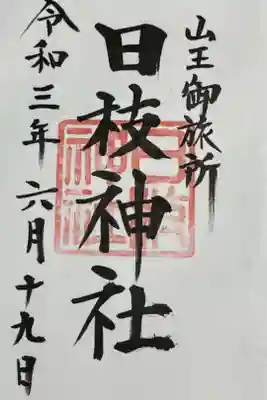 山王御旅所
日枝神社
令和三年六月十九日